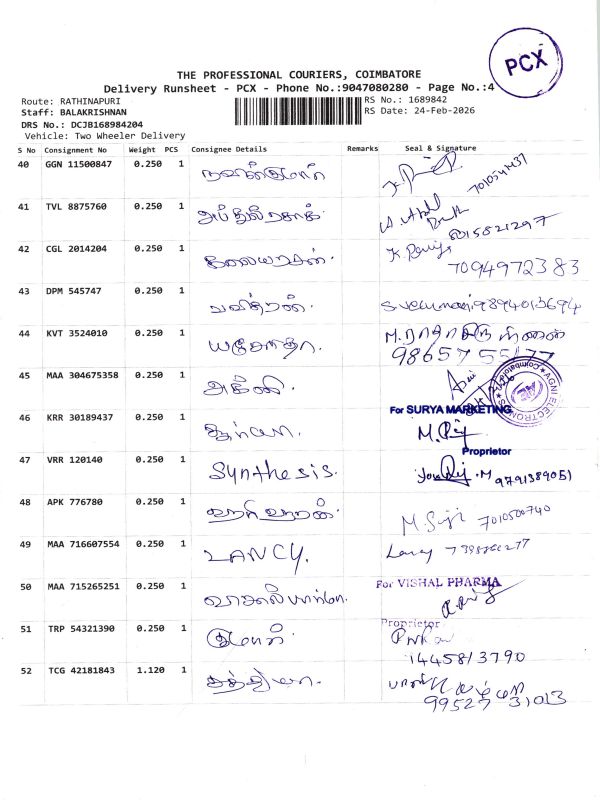 PCX
THE PROFESSIONAL COURIERS, COIMBATORE
Delivery Runsheet - PCX - Phone No.:9047080280 - Page No.:4
Route: RATHINAPURI
RS No.: 1689842
Staff: BALAKRISHNAN
RS Date: 24-Feb-2026
DRS No.: DCJB168984204
Vehicle: Two Wheeler Delivery
S No Consignment No Weight PCS Consignee Details Remarks Seal & Signature
40 GGN 11500847 0.250 1 நவீன்குமார்
41 TVL 8875760 0.250 1
42 CGL 2014204 0.250 1 கலையரசன். 7094972383
43 DPM 545747 0.250 1 பவித்ரன். 9894013694
44 KVT 3524010 0.250 1 யசோதா. 98657 55177
45 MAA 304675358 0.250 1 அக்னி
AGNI ELECTRONICS
For SURYA MARKETING
46 KRR 30189437 0.250 1 சூர்யா.
Proprietor
47 VRR 120140 0.250 1 Synthesis. 9791389051
48 APK 776780 0.250 1 ஹரிஹரன். 7010500740
49 MAA 716607554 0.250 1 LANCY.
50 MAA 715265251 0.250 1 For VISHAL PHARMA
Proprietor
51 TRP 54321390 0.250 1 குமார். 1445813790
52 TCG 42181843 1.120 1 சத்யா. 99527 31013